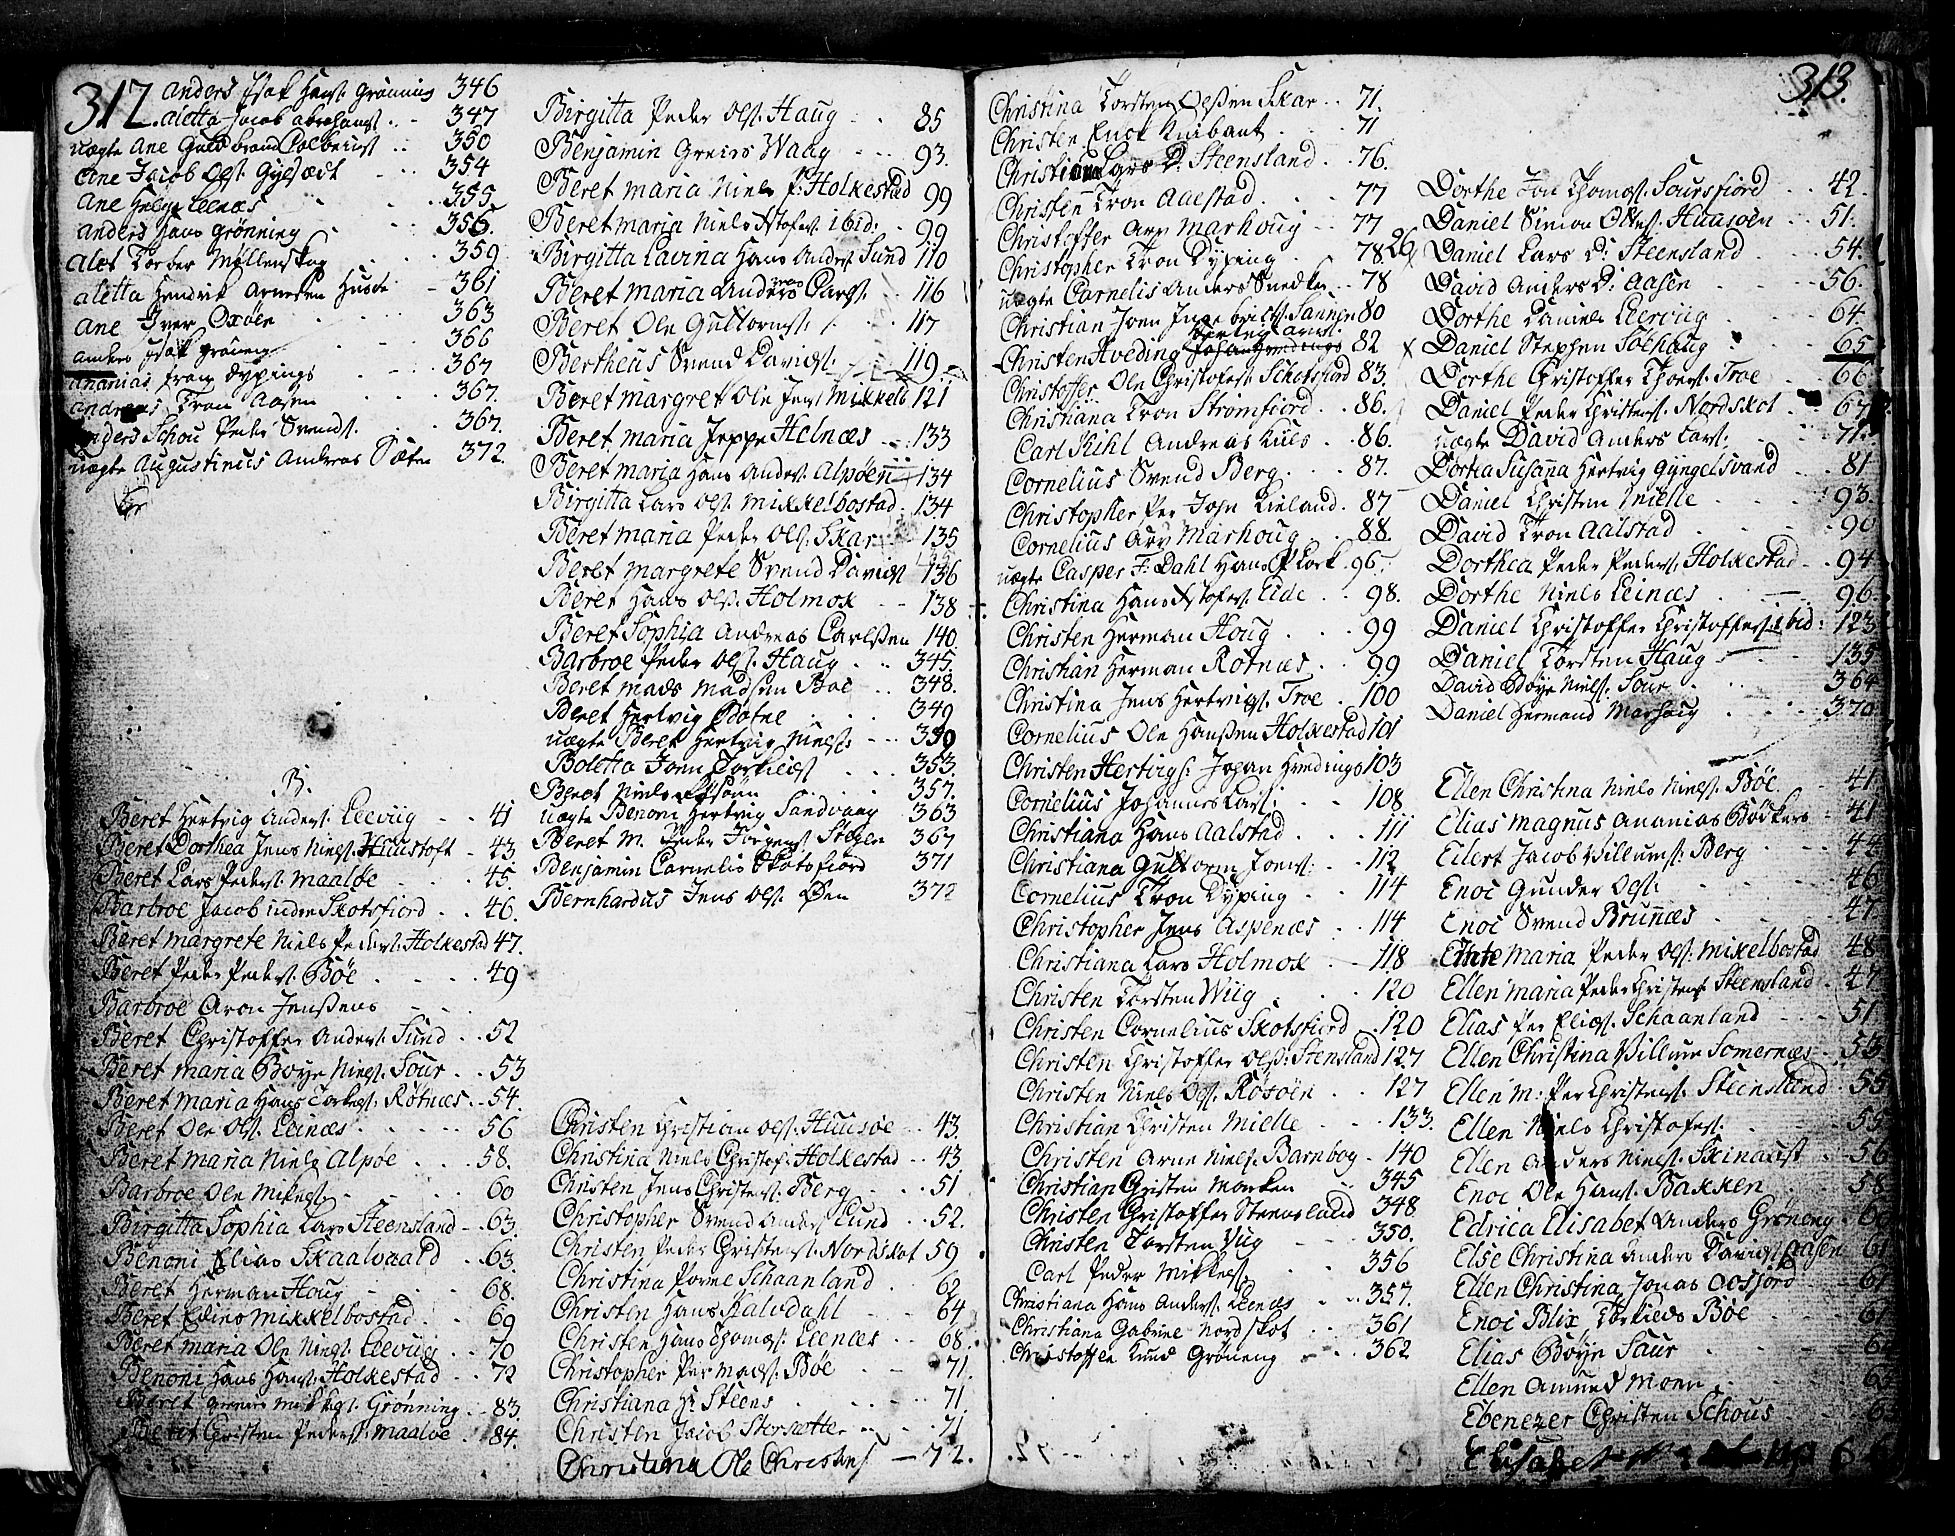 317.
Anders Isak Hans: Grønning 346
Aletta Jacob Abrahams: 347
uægte Ane Guldbrand Colbens 350
Ane Jacob Ols: 354
Ane Helge Leenæs 355
Anders Hans Grønning 356.
Alet Torber Møllenskog 359
Aletta Hendrik Arnesen Husbe 361
Ane Iver Oxøen 363
Anders Isak Grøneng 366
Ananias Franz Dyping 367
Andreas Tron Aasen 367.
Anders Schou Peder Svends: 367.
uægte Augustinus Andreas Sæter 372.
B.
Beret Hertvig Anders: Leevig 41
Beret Dorthea Jens Niels: Huustoft 43
Beret Lars Peders: Maaløe 45.
Barbroe Jacob indre Skotsfiord 46.
Beret Margrete Niels Peders: Holkestad 47.
Beret Peder Peders: Bøe 49
Barbroe Aron Jenssens
Beret Christoffer Anders: Sund 52
Beret Maria Bøye Niels: Sour 53
Beret Maria Hans Torkels: Røtnæs 54.
Beret Ole Ols: Leinæs 56
Beret Maria Niels Alpøe 58.
Barbroe Ole Mikels: 60
Birgitta Sophia Lars Steensland 63.
Benoni Elias Skaalvaald 63.
Beret Herman Houg 68.
Beret Elias Mikkelbostad 69
Beret Maria Ole Niels: Leevig 70
Benoni Hans Hans: Holkestad 72
Beret Greers Mikkels: Grønning 83.
Berit Christen Peders: Maaløe 84.
Birgitta Peder Ols: Haug 85
Benjamin Greers Waag 93.
Beret Maria Niels P: Holkestad 99
Beret Maria Niels Xstofers: ibid: 99
Birgitta Lavina Hans Anders Sund 110
Beret Maria Anders Lars: 116
Beret Ole Guttorms: 117
Bertheus Svend Davids: 119
Beret Margret Ole Jens: Mikkelb 121
Beret Maria Jeppe Helnæs 133
Beret Maria Hans Anders: Alpøen 134
Birgitta Lars Ols: Mikkelbostad 134
Beret Maria Peder Ols: Skar 135
Beret Margrete Svend Davids 136
Beret Hans Ols: Holmok 138
Beret Sophia Andreas Carlssen 140
Barbroe Peder Ols: Haug 345.
Beret Mads Madsen Boe 348.
Beret Hertvig Botne 349
uægte Beret Hertvig Niels: 350
Boletta Joen Torkields 353.
Beret Niels 357.
uægte Benoni Hertvig Sandvaag 363
Beret M. Peder Jørgens Stegen 367
Benjamin Carnelis Skotsfiord 371
Bernhardus Jens Ols: Øen 372
Christen Christian Ols: Huusøe 43.
Christina Niels Christof: Holkestad 43
Christen Jens Christens: Berg 51
Christopher Svend Anders Lund 52.
Christen Peder Christens: Nordskot 59
Christina Povne Schaanland 62
Christen Hans Kalvdahl 64
Christen Hans Thomas: Leenæs 68.
Christopher Per Mads: Boe 71.
Christiana H: Steens 71
Christen Jacob Storsætter 71
Christina Ole Christens 72.
313.
Christina Torsten Olssen Skar 71.
Christen Enok Knibant 71
Christiana Lars D: Steensland 76.
Christen Tron Aalstad 77
Christoffer Arv Marhoug 77
Christopher Tron Dyping 78
uægte Carnelis Anders Snedker 78
Christian Joen Ingebrits: Sannen 80
Christen Hveding 82
Christoffer Ole Christofers: Skotsfiord 83.
Christiana Tron Strømfiord 86.
Carl Kuhl Andreas Kuls 86.
Cornelius Svend Berg 87.
Christopher Per John Kieland 87
Cornelius Arv Marhoug 88.
uægte Casper F. Dahl Hans P Lock 96.
Christina Hans Xstofers: Eide 98.
Christen Herman Houg 99
Christian Herman Røtnæs 99
Christina Jens Hertvigs: Troe 100
Cornelius Ole Hanssen Holkestad 101
Christen Hertvigs: Johan Hvedings 103
Cornelius Johannes Lars: 108
Christiana Hans Aalstad 111
Christiana Guttorm Joens: 112
Cornelius Tron Dyping 114
Christopher Jens Aspenæs 114
Christiana Lars Holmok 118
Christen Torsten Wiig 120
Christen Cornelius Skotsfiord 120
Christen Christoffer Ols: Stensland 127
Christen Niels Ols: Røsøen 127
Christian Christen Mielle 133.
Christen Arne Niels: Barnbog 140
Christian Christen Morken 345
Christen Christoffer Steensland 348
Christen Torsten Viig 350.
Carl Peder Mikkels 356
Christiana Hans Anders: Leenæs 357.
Christiana Gabriel Nordskot 361
Christoffer Knud Grøneng 362
Dorthe Jon Thomas: Soursfiord 42.
Daniel Simon Ellings: Huusøen 51.
26 Daniel Lars D: Steensland 54.
David Anders D: Aasen 56.
Dorthe Daniels Leervig 64.
X Daniel Stephen Solhaug 65
Dorthe Christoffer Thoers: Troe 66
Daniel Peder Christens: Nordskot 67
uægte David Anders Lars: 71.
Dortea Susanna Hertvig Gyngelsvand 81
Daniel Christen Mielle 93.
David Tron Aalstad 90
Dorthea Peder Peders: Holkestad 94
Dorthe Niels Leinæs 96.
Daniel Christoffer Christoffers: ibid: 123
Daniel Torsten Haug 135
David Bøye Niels: Sour 364
Daniel Hermand Marhoug 370
Ellen Christina Niels Niels: Bøe 41
Elias Magnus Ananias Bødkers 41
Eilert Jacob Villums: Berg 44
Enoc Gunder Ols: 46
Enoc Svend Brunnæs 47
Maria Peder Ols: Mikelbostad 48
Ellen Maria Peder Christens Steensland 47
Elias Per Elias: Schaanland 51
Ellen Christina Villum Somernæs 53
Ellen M: Per Christens: Steensland 55
Ellen Niels Christofers: 55
Ellen Anders Niels: Skinalfst 56
Enoc Ole Hans: Bakken 58
Edrica Elisabet Anders Grøneng 60
Else Christina Anders Davids: Aasen 61
Ellen Christina Jonas Oesfiord 61
Enoc Blix Torkields Boe 61
Elias Bøye Saur 62
Ellen Amund Moen 63
Ebenezer Christen Schous 65
Elisabet